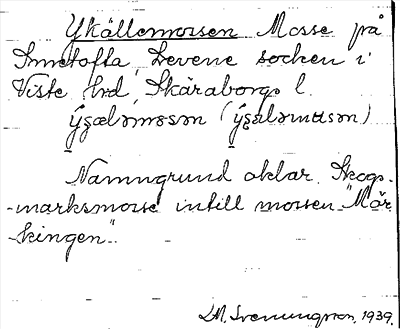 Ykällemossen Mosse på
Innetofta, Levene socken i
Viste hd, Skaraborgs l.
ýʒæləmɵsən (ýʒæləmɵsən)
Namngrund oklar. Skogs-
-marksmosse intill mossen "Mör-
kingen".
M. Svenungsson, 1939.